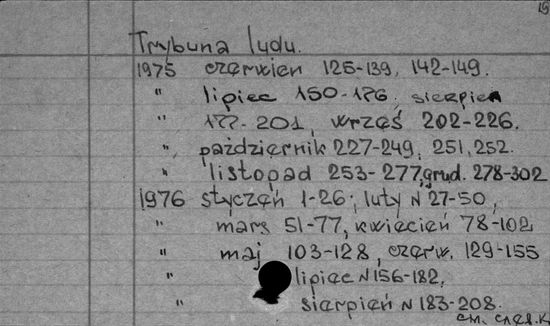 19
Trybuna ludu.
1975 czerwien 125-139, 142-149.
" lipiec 150-176, sierpien
" 177-201, wrześ 202-226.
" październik 227-249, 251, 252.
" listopad 253-277, grud. 278-302
1976 styczeń 1-26; luty N 27-50,
" mars 51-77, kwiecień 78-102
" maj 103-128, czerw. 129-155
" lipiec N 156-182,
" sierpień N 183-208.
см. след. к